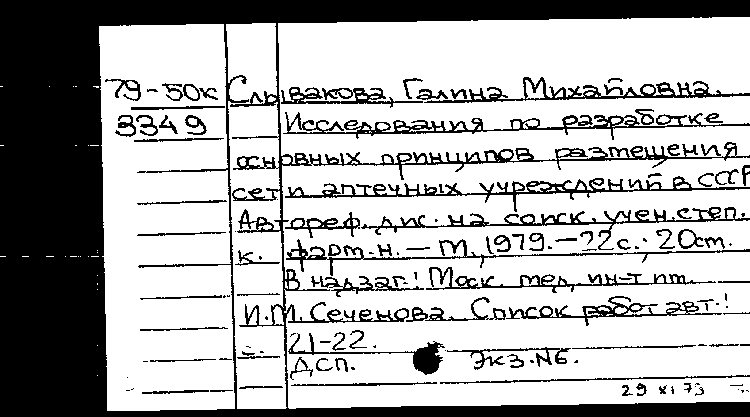 79-50к Слывакова, Галина Михайловна.
3349 Исследования по разработке
основных принципов размещения
сети аптечных учреждений в СССР
Автореф. дис. на соиск. учен. степ.
к. фарм. н. — М., 1979. — 22 с.; 20 см.
В надзаг.: Моск. мед. ин-т им.
И.М. Сеченова. Список работ авт.:
с. 21-22.
ДСП. Экз. №6.
29 XI 79